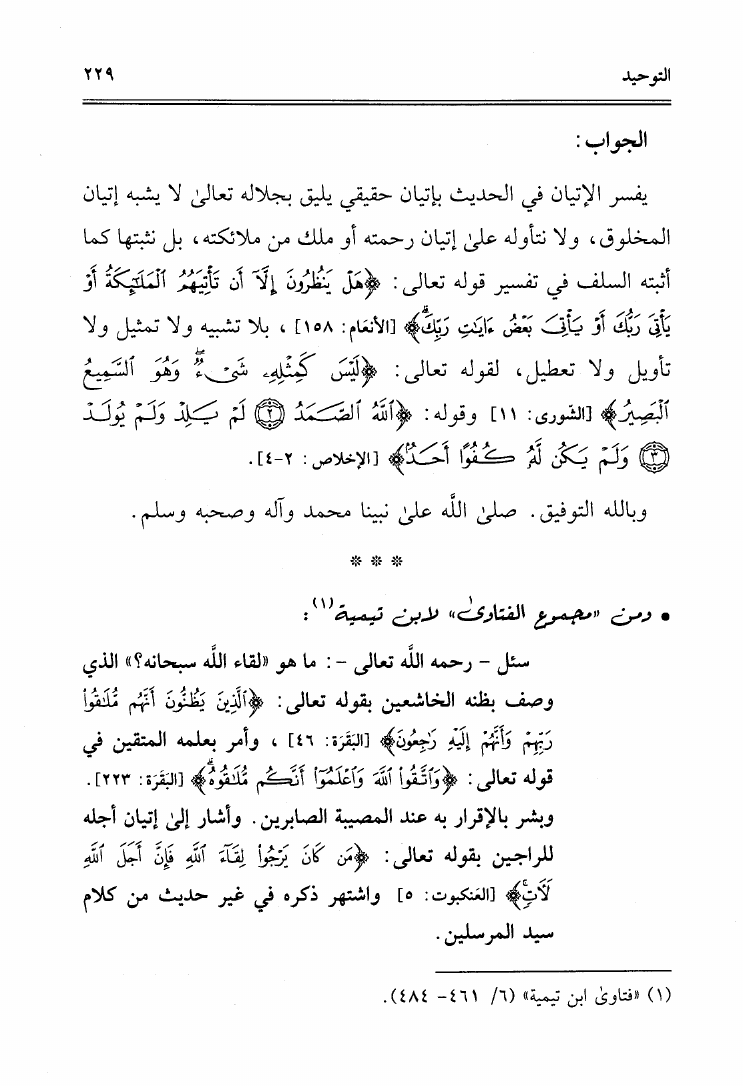 التوحيد ٢٢٩
الجواب:
يفسر الإتيان في الحديث بإتيان حقيقي يليق بجلاله تعالىٰ لا يشبه إتيان
المخلوق، ولا نتأوله علىٰ إتيان رحمته أو ملك من ملائكته، بل نثبتها كما
أثبته السلف في تفسير قوله تعالى: ﴿هَلۡ يَنظُرُونَ إِلَّآ أَن تَأۡتِيَهُمُ ٱلۡمَلَٰٓئِكَةُ أَوۡ
يَأۡتِيَ رَبُّكَ أَوۡ يَأۡتِيَ بَعۡضُ ءَايَٰتِ رَبِّكَۗ﴾ [الأنعَام: ١٥٨]، بلا تشبيه ولا تمثيل ولا
تأويل ولا تعطيل، لقوله تعالى: ﴿لَيۡسَ كَمِثۡلِهِۦ شَيۡءٞۖ وَهُوَ ٱلسَّمِيعُ
ٱلۡبَصِيرُ﴾ [الشّورى: ١١] وقوله: ﴿ٱللَّهُ ٱلصَّمَدُ ٢ لَمۡ يَلِدۡ وَلَمۡ يُولَدۡ
٣ وَلَمۡ يَكُن لَّهُۥ كُفُوًا أَحَدُۢ﴾ [الإخلاص: ٢-٤].
وبالله التوفيق. صلىٰ اللَّه علىٰ نبينا محمد وآله وصحبه وسلم.
* * *
• ومن «مجموع الفتاوىٰ» لابن تيمية(١):
سئل - رحمه اللَّه تعالى -: ما هو «لقاء اللَّه سبحانه؟» الذي
وصف بظنه الخاشعين بقوله تعالى: ﴿ٱلَّذِينَ يَظُنُّونَ أَنَّهُم مُّلَٰقُواْ
رَبِّهِمۡ وَأَنَّهُمۡ إِلَيۡهِ رَٰجِعُونَ﴾ [البَقَرَة: ٤٦]، وأمر بعلمه المتقين في
قوله تعالى: ﴿وَٱتَّقُواْ ٱللَّهَ وَٱعۡلَمُوٓاْ أَنَّكُم مُّلَٰقُوهُۗ﴾ [البَقَرَة: ٢٢٣].
وبشر بالإقرار به عند المصيبة الصابرين. وأشار إلىٰ إتيان أجله
للراجين بقوله تعالى: ﴿مَن كَانَ يَرۡجُواْ لِقَآءَ ٱللَّهِ فَإِنَّ أَجَلَ ٱللَّهِ
لَأٓتٖۚ﴾ [العَنكبوت: ٥] واشتهر ذكره في غير حديث من كلام
سيد المرسلين.
(١) «فتاوىٰ ابن تيمية» (٦/ ٤٦١- ٤٨٤).